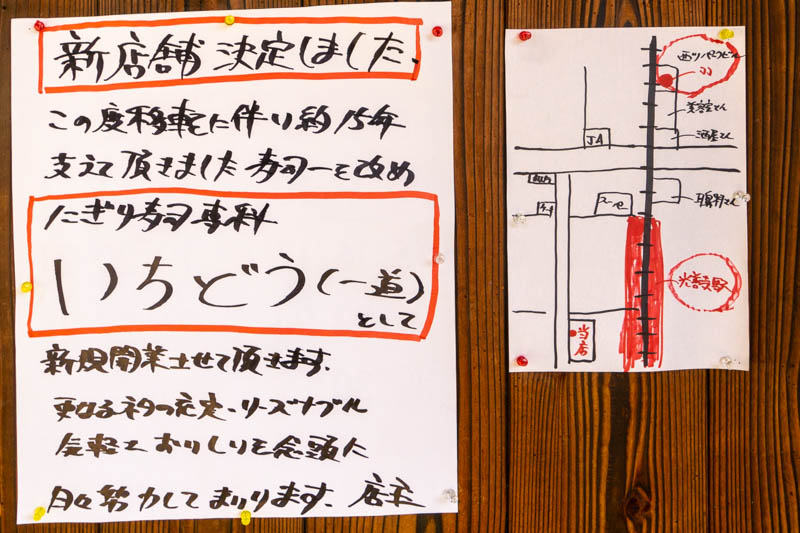 新店舗決定しました、
この度移転に伴い約15年
支えて頂きました寿司一を改め
にぎり寿司専科
いちどう(一道)
として
新規開業させて頂きます.
更なるネタの充実・リーズナブル
気軽でおいしいを念頭に
日々努力してまいります、店主
JA
美容室さん
酒屋さん
光善寺駅
当店